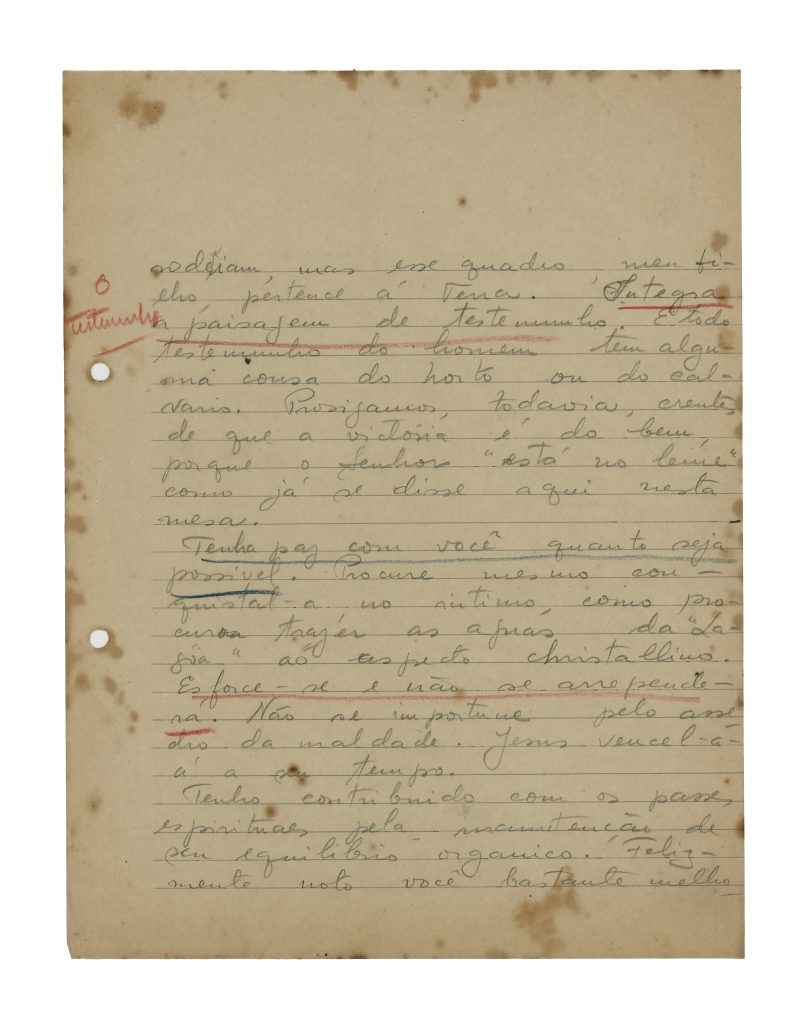 rodeiam, mas esse quadro, meu fi-
lho, pertence á Terra. Integra
O
testemunho
a paisagem de testemunho. E todo
testemunho do homem tem algu-
ma cousa do horto ou do cal-
vario. Prosigamos, todavia, crentes
de que a victória é do bem,
porque o Senhor "está no leme"
como já se disse aqui nesta
mesa.
Tenha paz com você quanto seja
possivel. Procure mesmo con-
quistal-a no intimo, como pro-
curou trazer as aguas da "La-
gôa" ao aspecto christallino.
Esforce-se e não se arrepende-
rá. Não se importune pelo asse
dio da maldade. Jesus vencel-á-
á a seu tempo.
Tenho contribuido com os passes
espirituaes pela manutenção de
seu equilibrio organico. Feliz-
mente noto você bastante melho